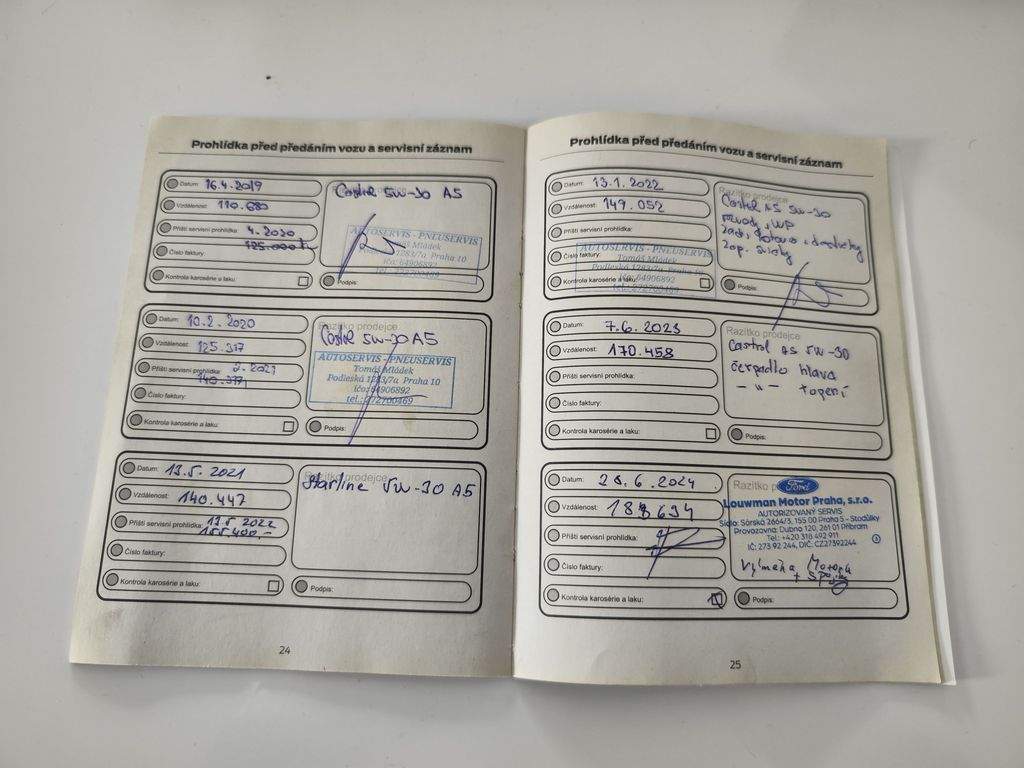 Prohlídka před předáním vozu a servisní záznam
Datum: 16.4.2019
Vzdálenost: 110.680
Příští servisní prohlídka: 4.2020
125.000
Číslo faktury:
Kontrola karosérie a laku:
Castrol 5W-30 A5
AUTOSERVIS - PNEUSERVIS
Tomáš Mládek
Podleská 1283/7a Praha 10
ičo: 64906892
tel.: 272700469
Podpis:
Datum: 10.2.2020
Vzdálenost: 125.317
Příští servisní prohlídka: 2.2021
140.317
Číslo faktury:
Kontrola karosérie a laku:
Razítko prodejce
Castrol 5W-30 A5
AUTOSERVIS - PNEUSERVIS
Tomáš Mládek
Podleská 1283/7a Praha 10
ičo: 64906892
tel.: 272700469
Podpis:
Datum: 13.5.2021
Vzdálenost: 140.447
Příští servisní prohlídka: 13.5 2022
155.400,-
Číslo faktury:
Kontrola karosérie a laku:
Razítko prodejce
Starline 5W-30 A5
Podpis:
24
Prohlídka před předáním vozu a servisní záznam
Datum: 13.1.2022
Vzdálenost: 149.052
Příští servisní prohlídka:
Číslo faktury:
Kontrola karosérie a laku:
AUTOSERVIS - PNEUSERVIS
Tomáš Mládek
Podleská 1283/7a Praha 10
ičo: 64906892
tel.: 272700469
Razítko prodejce
Castrol A5 5W-30
rozvody, WP
zad.
zap. svíčky
Podpis:
Datum: 7.6.2023
Vzdálenost: 170.458
Příští servisní prohlídka:
Číslo faktury:
Kontrola karosérie a laku:
Razítko prodejce
Castrol A5 5W-30
čerpadlo hlava
- " - topení
Podpis:
Datum: 28.6.2024
Vzdálenost: 188634
Příští servisní prohlídka:
Číslo faktury:
Kontrola karosérie a laku:
Razítko p
Ford
Louwman Motor Praha, s.r.o.
AUTORIZOVANÝ SERVIS
Sídlo: Sárská 2664/3, 155 00 Praha 5 - Stodůlky
Provozovna: Dubno 120, 261 01 Příbram
Tel.: +420 318 492 911
IČ: 273 92 244, DIČ: CZ27392244
3
Výměna Motoru
+ Spojky
Podpis:
25